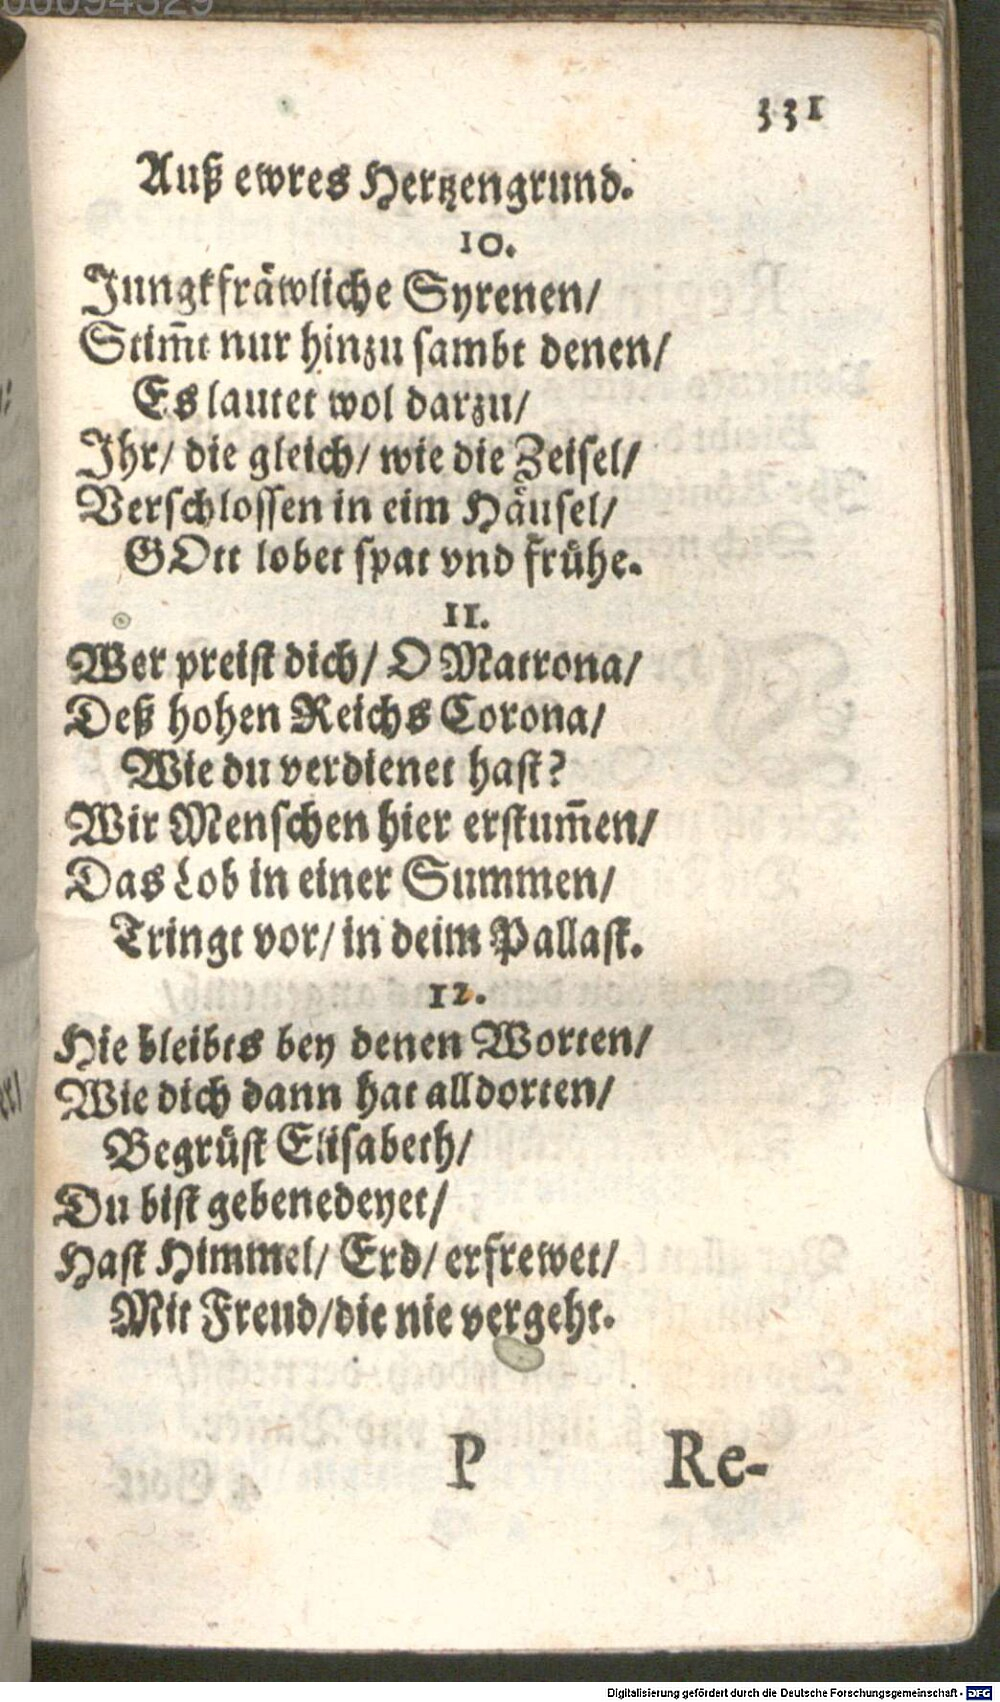 06094329
331
Auß ewres Hertzengrund.
10.
Jungkfräwliche Syrenen/
Stim̃t nur hinzu sambt denen/
Es lautet wol darzu/
Ihr/ die gleich/ wie die Zeisel/
Verschlossen in eim Häusel/
GOtt lobet spat vnd frühe.
11.
Wer preist dich/ O Matrona/
Deß hohen Reichs Corona/
Wie du verdienet hast?
Wir Menschen hier erstum̃en/
Das Lob in einer Summen/
Tringt vor/ in deim Pallast.
12.
Hie bleibts bey denen Worten/
Wie dich dann hat alldorten/
Begrüst Elisabeth/
Du bist gebenedeyet/
Hast Himmel/ Erd/ erfrewet/
Mit Freud/ die nie vergeht.
P Re-
Digitalisierung gefördert durch die Deutsche Forschungsgemeinschaft - DFG